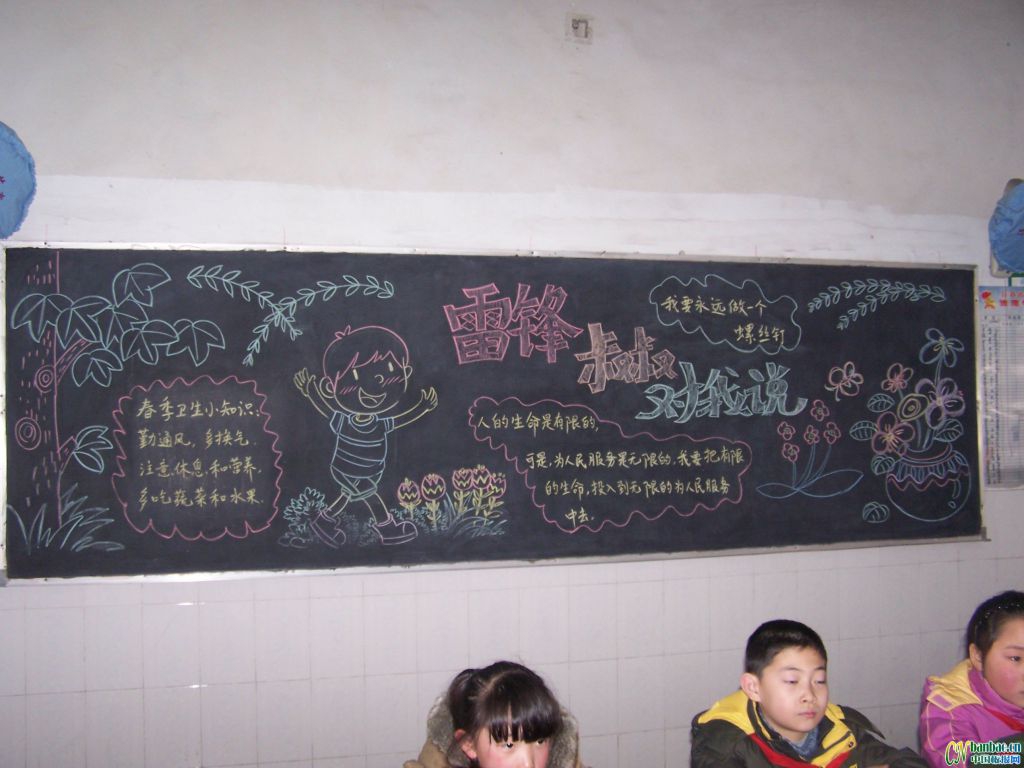 雷锋
叔叔
对我说
我要永远做一个
螺丝钉
春季卫生小知识:
勤通风,多换气.
注意休息和营养.
多吃蔬菜和水果.
人的生命是有限的,
可是,为人民服务是无限的.我要把有限
的生命,投入到无限的为人民服务
中去.
CN banbao.cn
中国板报网